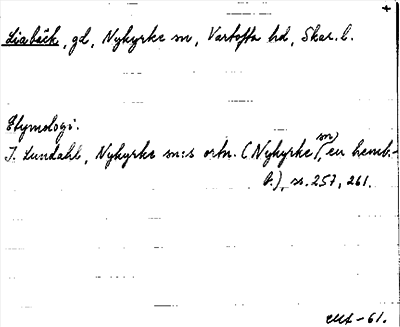 +
Liabäck, gd, Nykyrke sn, Vartofta hd, Skar. l.
Etymologi.
I. Lundahl, Nykyrke sn:s ortn. (Nykyrke sn, en hemb.-
b.), s. 257, 261.
-61.